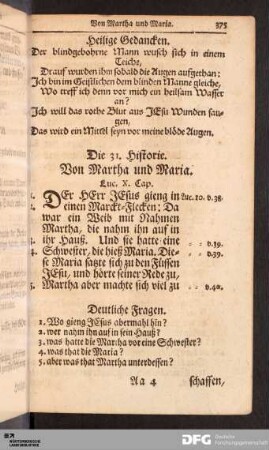 Von Martha und Maria. 375
Heilige Gedancken.
Der blindgebohrne Mann wusch sich in einem
Teiche,
Drauf wurden ihm sobald die Augen aufgethan:
Ich bin im Geistlichen dem blinden Manne gleiche,
Wo treff ich denn vor mich ein heilsam Wasser
an?
Ich will das rothe Blut aus JEsu Wunden sau-
gen,
Das wird ein Mittel seyn vor meine blöde Augen.
Die 31. Historie.
Von Martha und Maria.
Luc. X. Cap.
1. DEr HErr JEsus gieng in Luc. 10. v. 38.
2. einen Marckt-Flecken: Da
war ein Weib mit Nahmen
Martha, die nahm ihn auf in
3. ihr Hauß. Und sie hatte eine v. 39.
4. Schwester, die hieß Maria. Die- v. 39.
se Maria satzte sich zu den Füssen
JEsu, und hörte seiner Rede zu,
5. Martha aber machte sich viel zu v. 40.
Deutliche Fragen.
1. Wo gieng JEsus abermahl hin?
2. wer nahm ihn auf in sein Hauß?
3. was hatte die Martha vor eine Schwester?
4. was that die Maria?
5. aber was that Martha unterdessen?
Aa 4 schaffen,
DFG Deutsche
Forschungsgemeinschaft